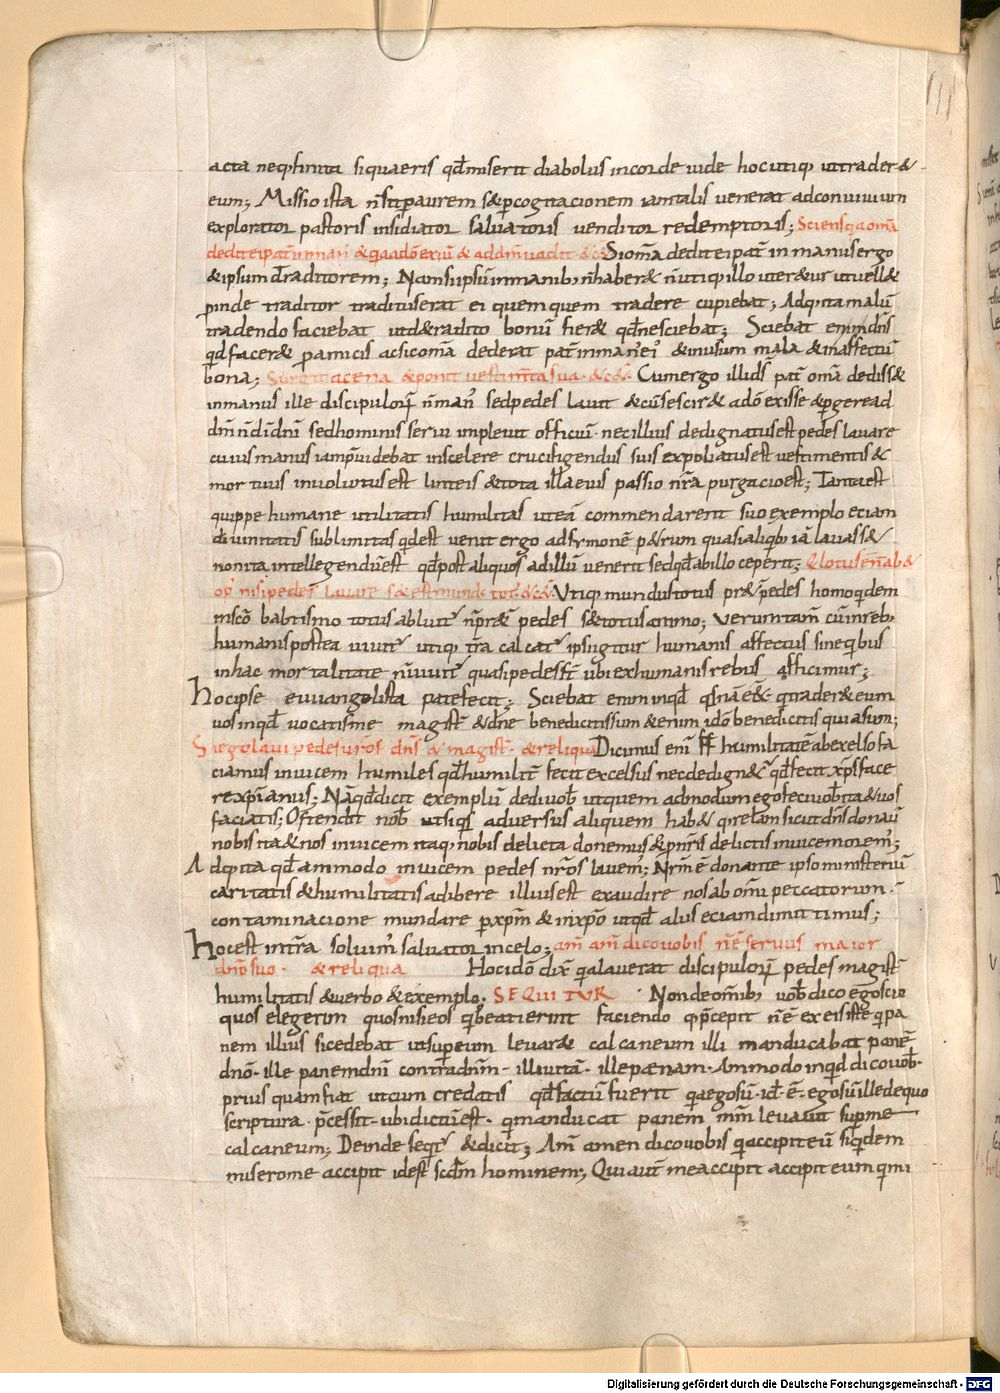 acta neq; finita si quaeris qđ miserit diabolus in corde uide hoc utiq; ut trader&
eum; Missio ista ñ fit p aurem s& p cogitacionem iam talis venerat ad conuiuium
explorator pastoris insidiator saluatoris venditor redemptoris; Sciens q̄a om̄a
dedit ei pat̄ in man; & q̄a a dō exiū & ad dn̄m uadit · &c& Si om̄a dedit ei pat̄ in manus ergo
& ipsum traditorem; Nam si ipsum in manib; ñ haber& ñ utiq; illo uter&ur ut uell&
p̱inde traditor traditus erat ei quem quem tradere cupiebat; Adq; ita malū
tradendo faciebat ut d& radito bonū fier& qđ nesciebat; Sciebat enim dn̄s
qđ facer& p̱ amicis ac si com̄a dederat pat̄ in man; ei; & in usum mala & in affectū
bona; Surgit a cena & ponit vestim̄ta sua · &c& Cum ergo illi ds̄ pat̄ om̄a dediss&
in manus ille discipulorum ñ man; sed pedes lauit & cū se scir& a dō exisse & pgere ad
dm̄ ñ dī dn̄i sed hominis serui impleuit officiū · nec illius dedignatus est pedes lauare
cuius manus iam p̄uidebat in scelere crucifigendus suis expoliatus est vestimentis &
mortuus inuolutus est linteis & tota illa eius passio nr̄a purgacio est; Tanta est
quippe humane utilitatis humilitas ut eā commendaret suo exemplo eciam
diuinitatis sublimitas qđ est venit ergo ad symonē p&rum quasi aliqb; iā lauass&
non ita intellegendū est qđ post aliquos ad illū venerit sed qđ ab illo ceperit; Qui lotus ē ñ hab&
op; nisi pedes lauare s& est mundus tot; &c& Utiq; mundus totus pr&̄ pedes homo qdem
in sc̄o babtismo totus abluit; ñ pr̄& pedes s& totus omnino; Verum tam̄ cū in reb;
humanis postea uiuit; utiq; t̄ra calcat; ipsi igitur humanis affectus sine qbus
in hac mortalitate ñ uiuit; quasi pedes st̄ ubi ex humanis rebus afficimur;
Hoc ipse euuangelista patefecit; Sciebat enim inqđ qsnā ēē& q trader& eum
uos inqđ vocatis me magist̄ & dn̄e benedicitis sum &enim idō benedicitis quia sum;
Si ego laui pedes ur̄os dn̄s & magist̄ · & reliqua Dicimus enī ff humilitatē ab excelso fa
ciamus inuicem humiles qđ humilit̄ fecit excelsus nec dedign&; qđ fecit xp̄s face
re xp̄ianus; Nā qđ dicit exemplū dedi uob̄ ut quem admodum ego feci uob̄ ita & uos
faciatis; Ostendit nob̄ ut siqs aduersus aliquem hab& qrelam sicut dn̄s donauit
nobis ita & nos inuicem itaq; nobis delicta donemus & p nr̄is delictis inuicem orem;
Adq; ita qđ ammodo inuicem pedes nr̄os lauem; Nr̄m ē donante ipso ministeriū
caritatis & humilitatis adibere illius est exaudire nos ab om̄i peccatorum
contaminacione mundare p xp̄m & in xp̄o ut qđ aliis eciam dimittimus;
Hoc est in t̄ra soluim; saluator in celo; am̄ am̄ dico uobis n̄ ē seruus maior
dn̄o suo · & reliqua Hoc idō dix̄ q̄a lauerat discipulorum pedes magist̄
humilitatis & uerbo & exemplo; SEQUITUR Non de om̄ib; uob̄ dico ego scio
quos elegerim quos nisi eos q beati erunt faciendo q p̄cepit n̄ ē ex eis iste q pa
nem illius si cedebat ut sup eum leuar& calcaneum illi manducabat panē
dn̄o · ille panem dn̄i contra dn̄m · illi uitā · ille pænam · Ammodo inqđ dico uob̄
prius quam fiat ut cum credatis qđ factū fuerit q̄a ego sū · id ē · ego sū ille de quo
scriptura p̄cessit · ubi dictū est · q manducat panem mm̄ leuauit sup me
calcaneum; Deinde seqt; & dicit; Am̄ amen dico uobis q accipit eū si qdem
misero me accipit id est scdm hominem; Qui aut̄ me accipit accipit eum q mi
Digitalisierung gefördert durch die Deutsche Forschungsgemeinschaft - DFG